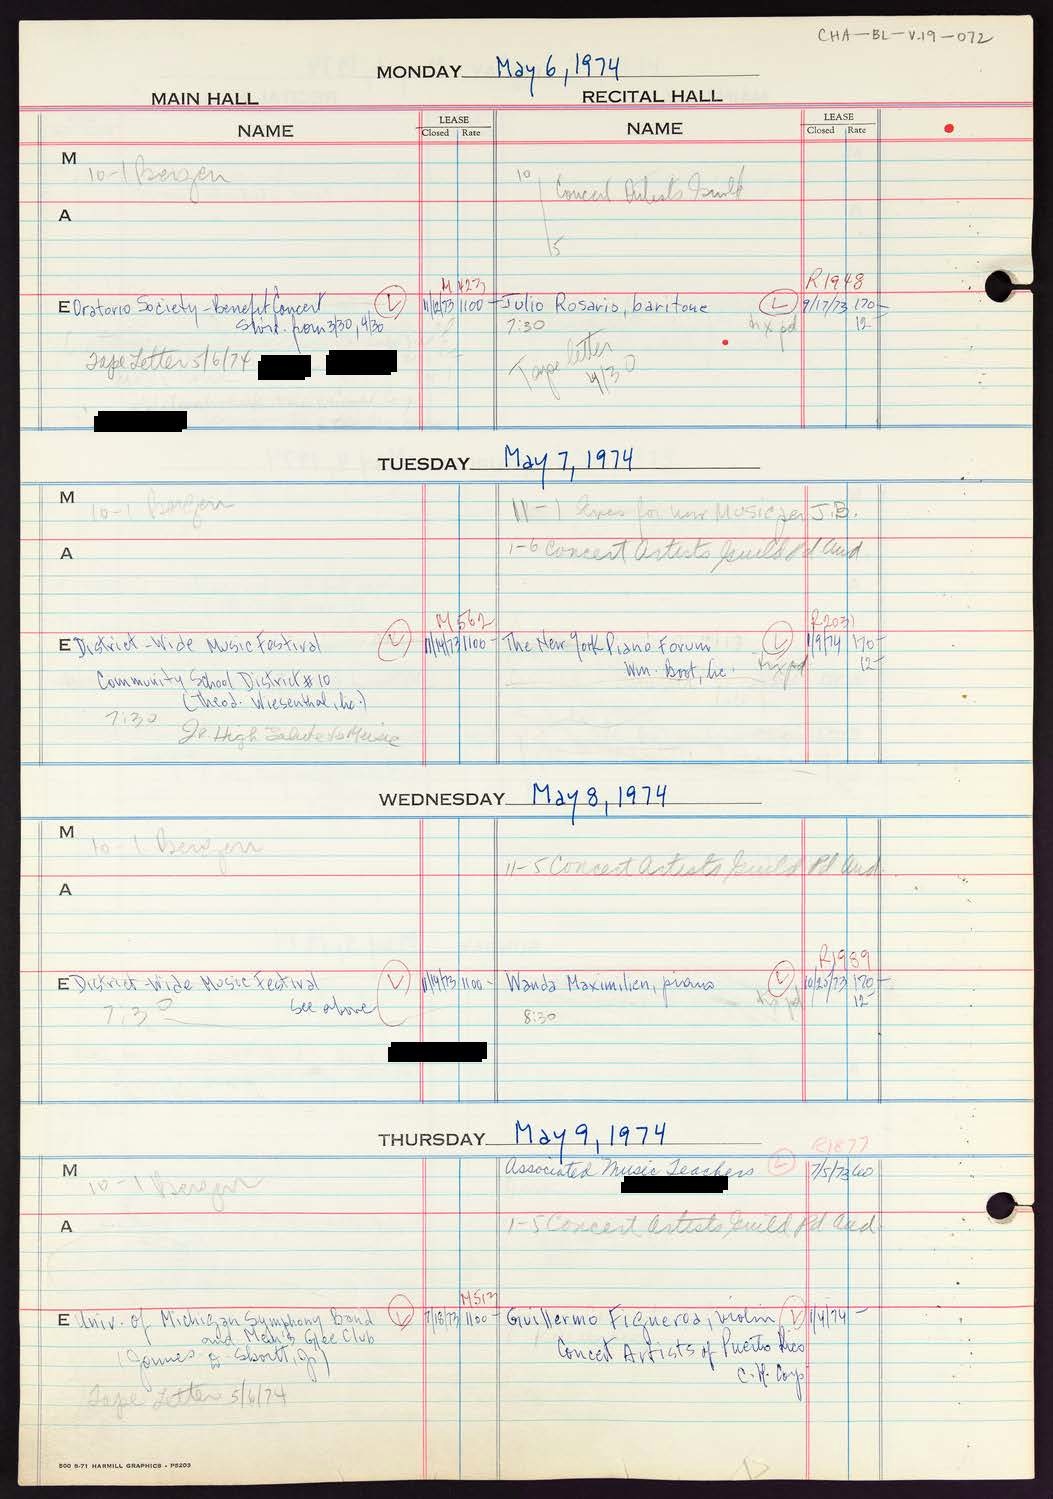 CHA-BL-V.19-072
MONDAY May 6, 1974
MAIN HALL RECITAL HALL
NAME LEASE Closed Rate NAME LEASE Closed Rate
M
10-1 Bergen
10
Concert Artists Guild
5
A
M 423
R1948
E Oratorio Society - Benefit Concert L 1100- Julio Rosario, baritone L 9/17/73 170-
from 3/30, 4/30
7:30 pd 12-
Tape Letter 5/6/74
Tape letter
4/30
TUESDAY May 7, 1974
M
10-1 Bergen
11-1 Music J.B.
A
1-6 Concert Artists Guild Pd Aud
M562
R2031
E District-Wide Music Festival L 11/14/73 1100- The New York Piano Forum L 1/9/74 170-
Community School District #10
Wm. Boot, Inc. pd 12-
(Theod. Wiesenthal, Inc.)
7:30
Jr. High Salute to Music
WEDNESDAY May 8, 1974
M
10-1 Bergen
11-5 Concert Artists Guild Pd Aud.
A
R1989
E District-Wide Music Festival L 11/14/73 1100- Wanda Maximilien, piano L 10/25/73 170-
7:30 See above
8:30 pd 12-
THURSDAY May 9, 1974
R1877
M
Associated Music Teachers L 7/5/73 60
10-1 Bergen
A
1-5 Concert Artists Guild Pd Aud.
M513
E Univ. of Michigan Symphony Band L 7/18/73 1100- Guillermo Figueroa, violin L 1/4/74 -
and Men's Glee Club
Concert Artists of Puerto Rico
C.H. Corp
Tape Letter 5/6/74
500 5-71 HARMILL GRAPHICS - P5203